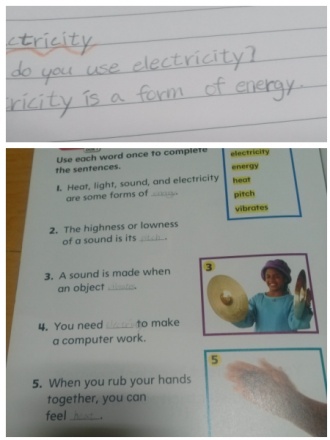 ctricity
do you use electricity?
ricity is a form of energy.
Use each word once to complete
the sentences.
electricity
energy
heat
pitch
vibrates
1. Heat, light, sound, and electricity
are some forms of energy.
2. The highness or lowness
of a sound is its pitch.
3. A sound is made when
an object
4. You need to make
a computer work.
5. When you rub your hands
together, you can
feel heat.
3
5